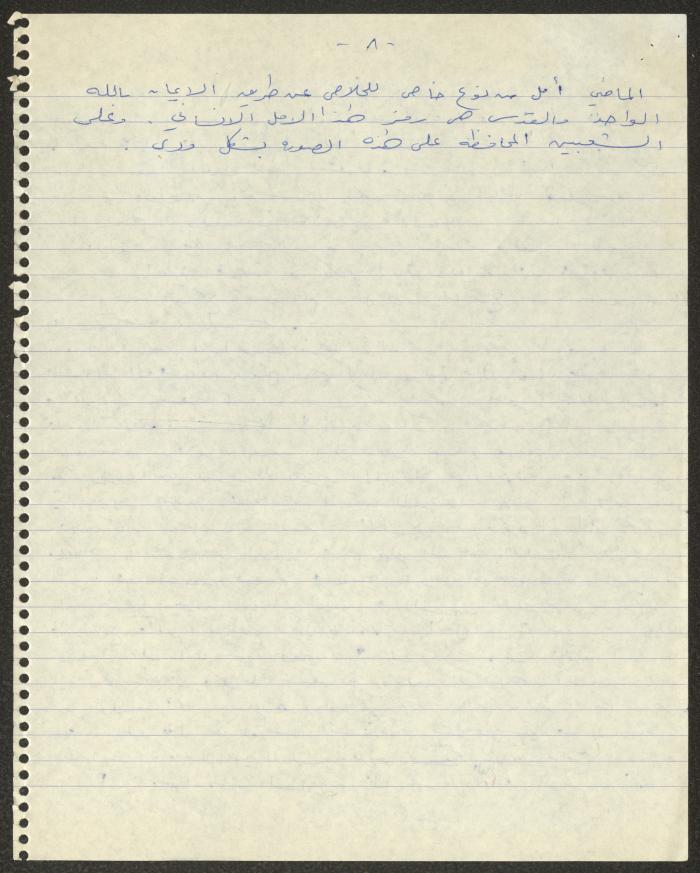 - ٨ -
الماضي أمل من نوع خاص للخلاص عن طريق الايمان بالله
الواحد والقدس هي رمز هذا الامل الانساني . وعلى
الشعبين المحافظه على هذه الصوره بشكل